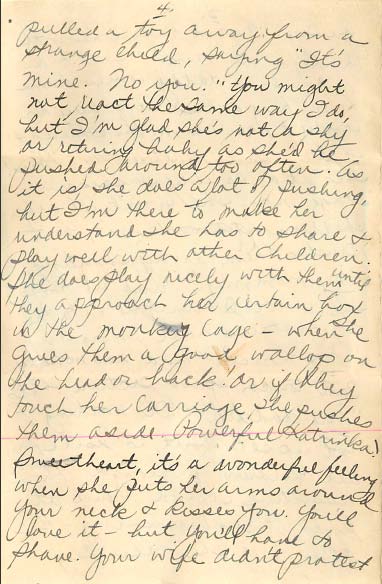 4.
pulled a toy away from a
strange child, saying "It's
mine. No you." You might
not react the same way I do,
but I'm glad she's not a shy
or retiring baby as she'd be
pushed around too often. As
it is she does a lot of pushing,
but I'm there to make her
understand she has to share &
play well with other children.
She does play nicely with them until
they approach her certain box
in the monkey cage – when she
gives them a good wallop on
the head or back. or if they
touch her carriage, she pushes
them aside. Powerful Katrinka!
Sweetheart, it's a wonderful feeling
when she puts her arms around
your neck & kisses you. You'll
love it – but you'll have to
shave. Your wife didn't protest